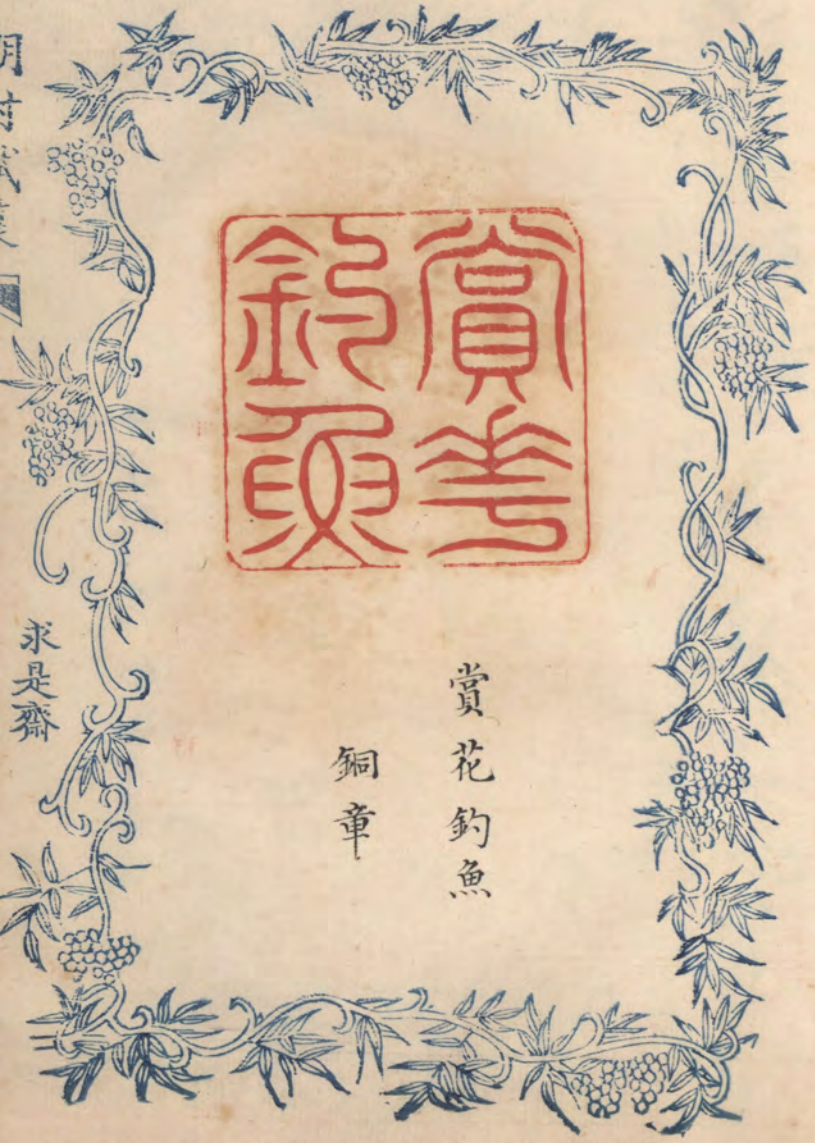 賞花
釣魚
賞花釣魚
銅章
求是齋